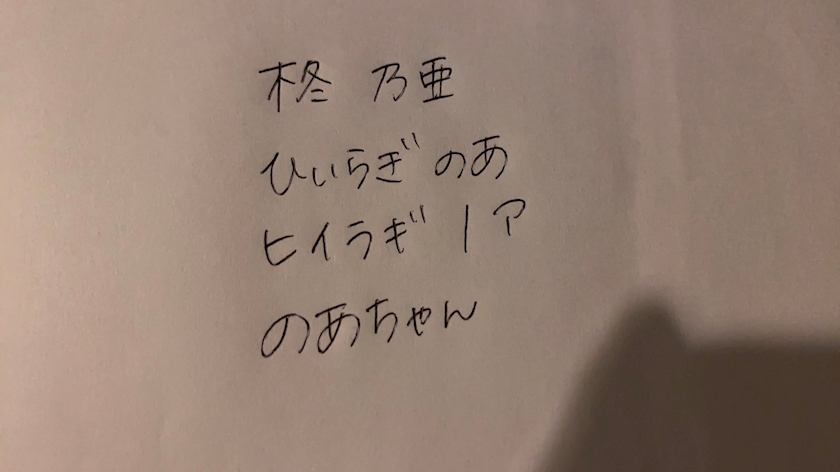 柊 乃亜
ひいらぎのあ
ヒイラギ ノア
のあちゃん